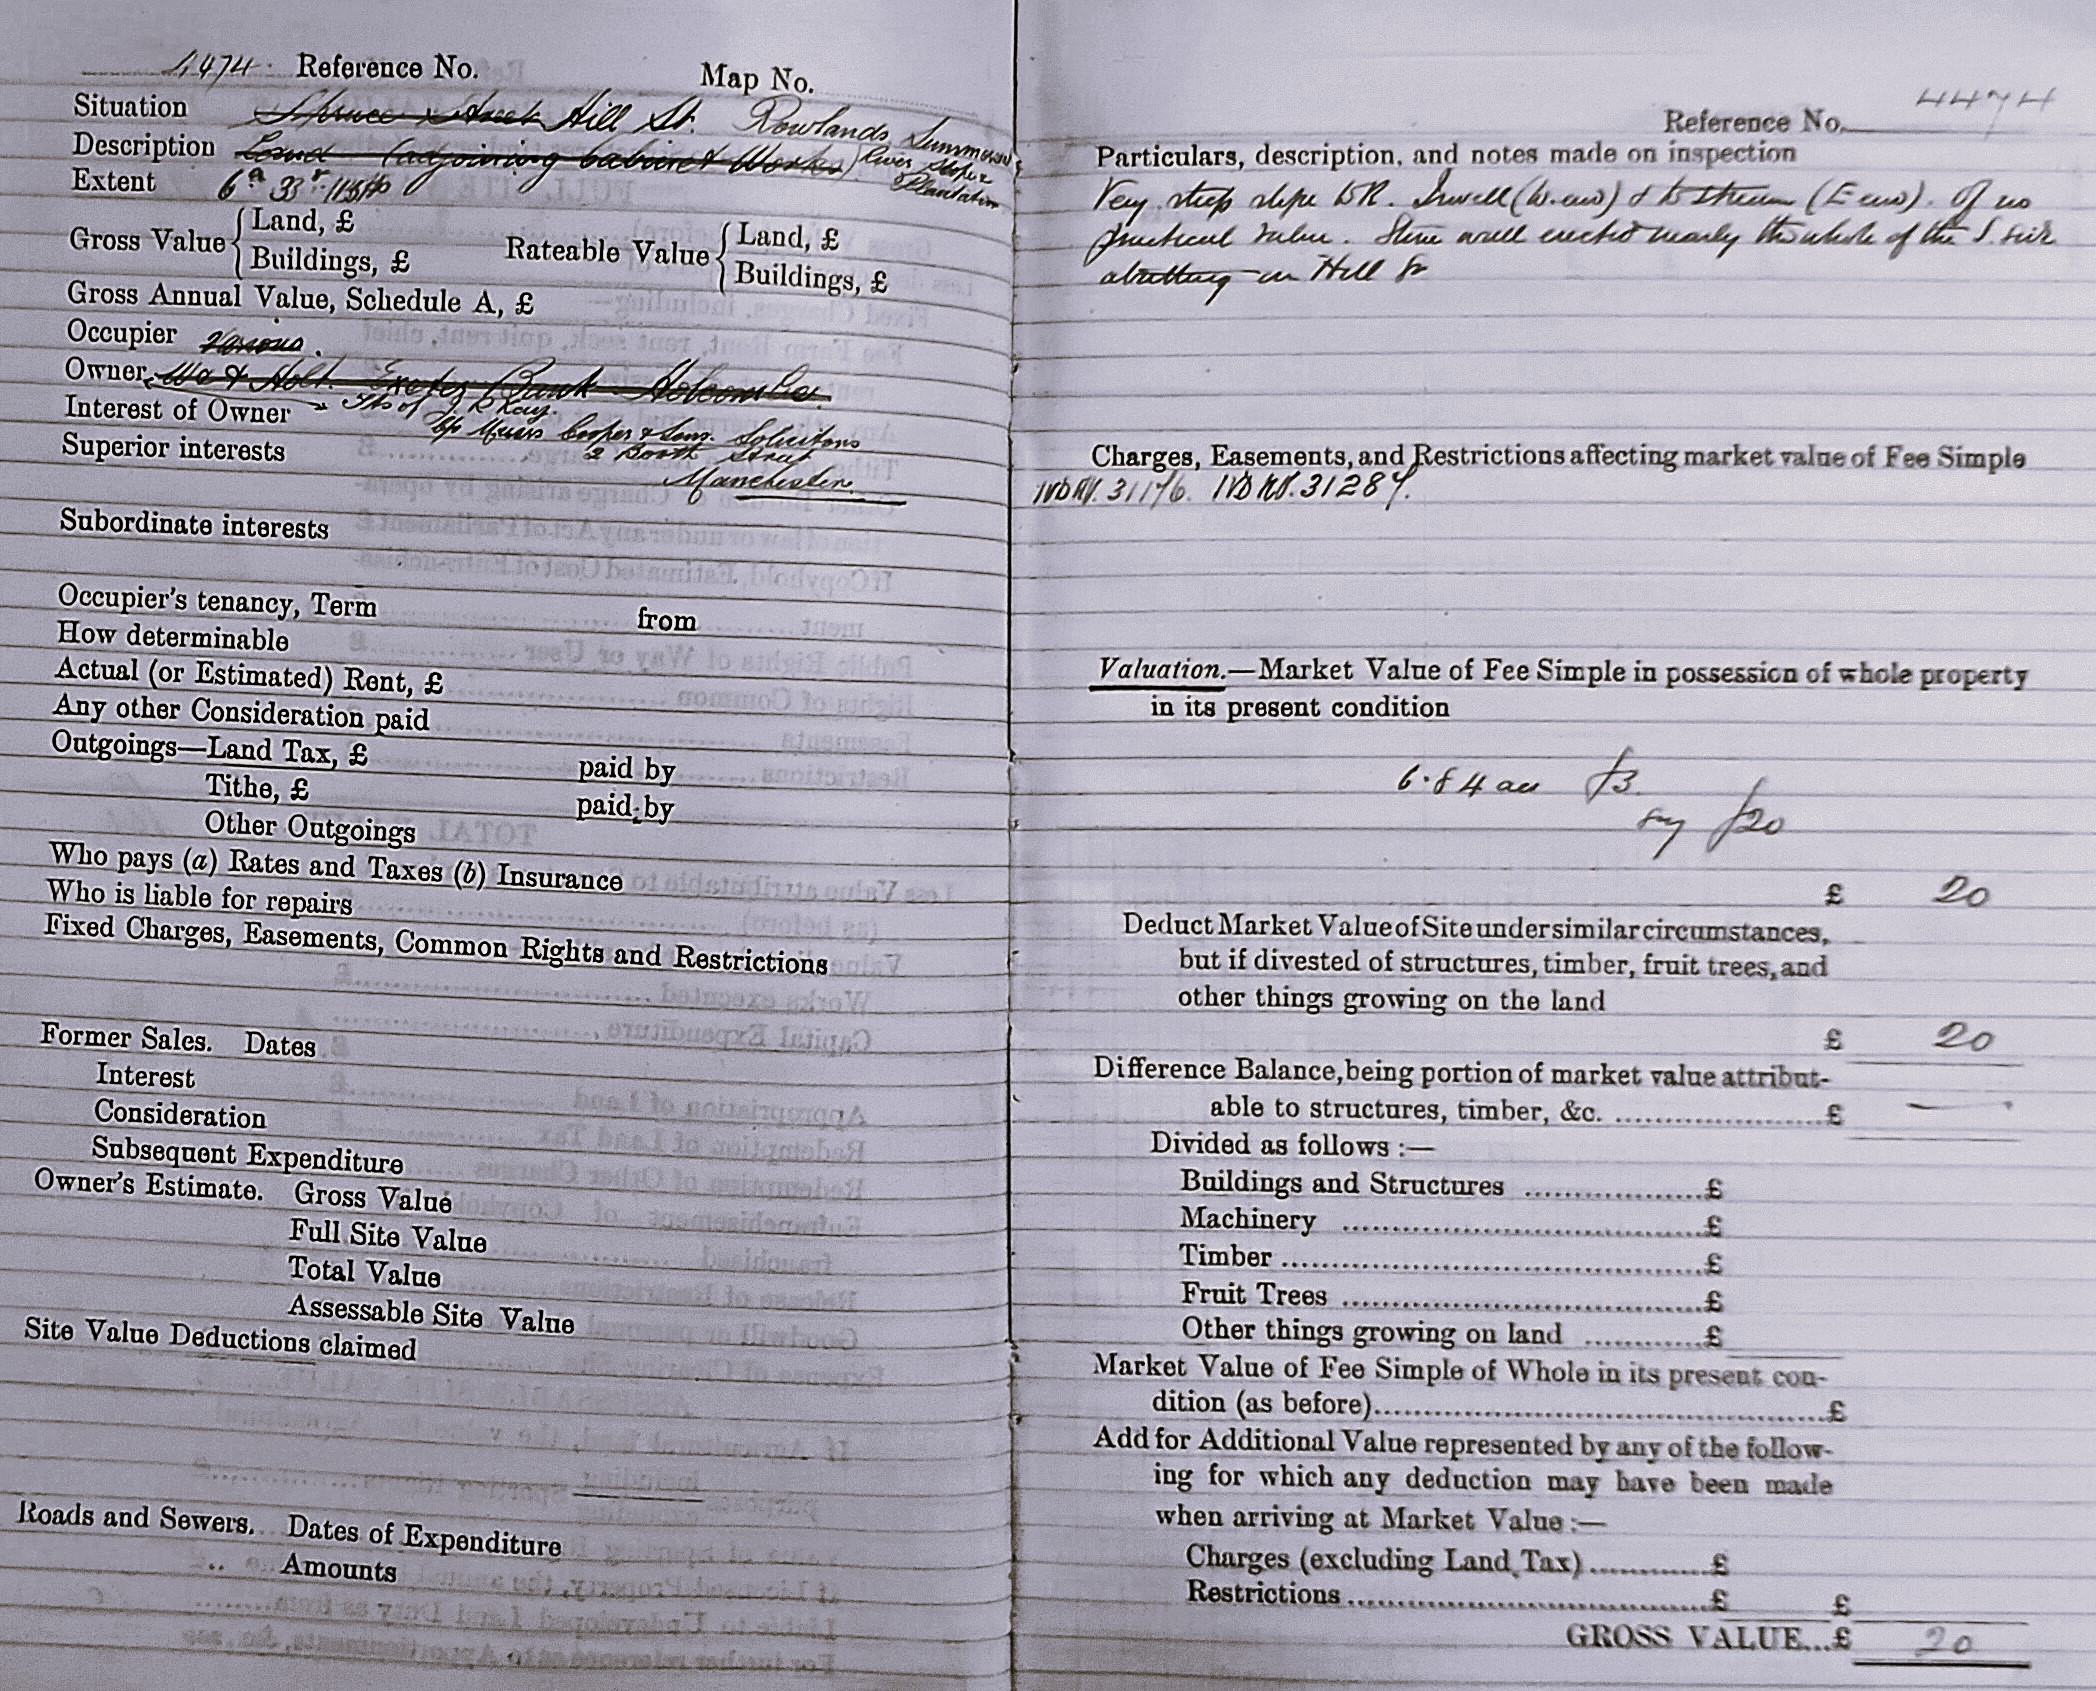 4474. Reference No. Map No.
Situation Spruce Street Hill St. Rowlands, Summerseat
Description Land (adjoining Cabinet Works) River Slopes
Plantation
Extent 6a 33r
Gross Value { Land, £
Buildings, £
Rateable Value { Land, £
Buildings, £
Gross Annual Value, Schedule A, £
Occupier Various.
Owner Holt. Bank Holcombe.
Interest of Owner Trs of J. R Kay.
c/o Messrs Cooper & Sons. Solicitors
Superior interests 2 Booth Street
Manchester.
Subordinate interests
Occupier's tenancy, Term from
How determinable
Actual (or Estimated) Rent, £
Any other Consideration paid
Outgoings—Land Tax, £ paid by
Tithe, £ paid by
Other Outgoings
Who pays (a) Rates and Taxes (b) Insurance
Who is liable for repairs
Fixed Charges, Easements, Common Rights and Restrictions
Former Sales. Dates
Interest
Consideration
Subsequent Expenditure
Owner's Estimate. Gross Value
Full Site Value
Total Value
Assessable Site Value
Site Value Deductions claimed
Roads and Sewers. Dates of Expenditure
Amounts
Reference No. 4474
Particulars, description, and notes made on inspection
Very steep slope to R. Irwell (W. end) & to stream (E end). Of no
practical value. Stone wall erected nearly the whole of the S. side
abutting on Hill St
Charges, Easements, and Restrictions affecting market value of Fee Simple
IVD NV. 31176. IVD NV. 31284.
Valuation.—Market Value of Fee Simple in possession of whole property
in its present condition
6.84 acs £3.
say £20
£ 20
Deduct Market Value of Site under similar circumstances,
but if divested of structures, timber, fruit trees, and
other things growing on the land
£ 20
Difference Balance, being portion of market value attribut-
able to structures, timber, &c. ............ £ —
Divided as follows :—
Buildings and Structures ............ £
Machinery ............ £
Timber ............ £
Fruit Trees ............ £
Other things growing on land ............ £
Market Value of Fee Simple of Whole in its present con-
dition (as before) ............ £
Add for Additional Value represented by any of the follow-
ing for which any deduction may have been made
when arriving at Market Value :—
Charges (excluding Land Tax) ............ £
Restrictions ............ £ £
GROSS VALUE...£ 20